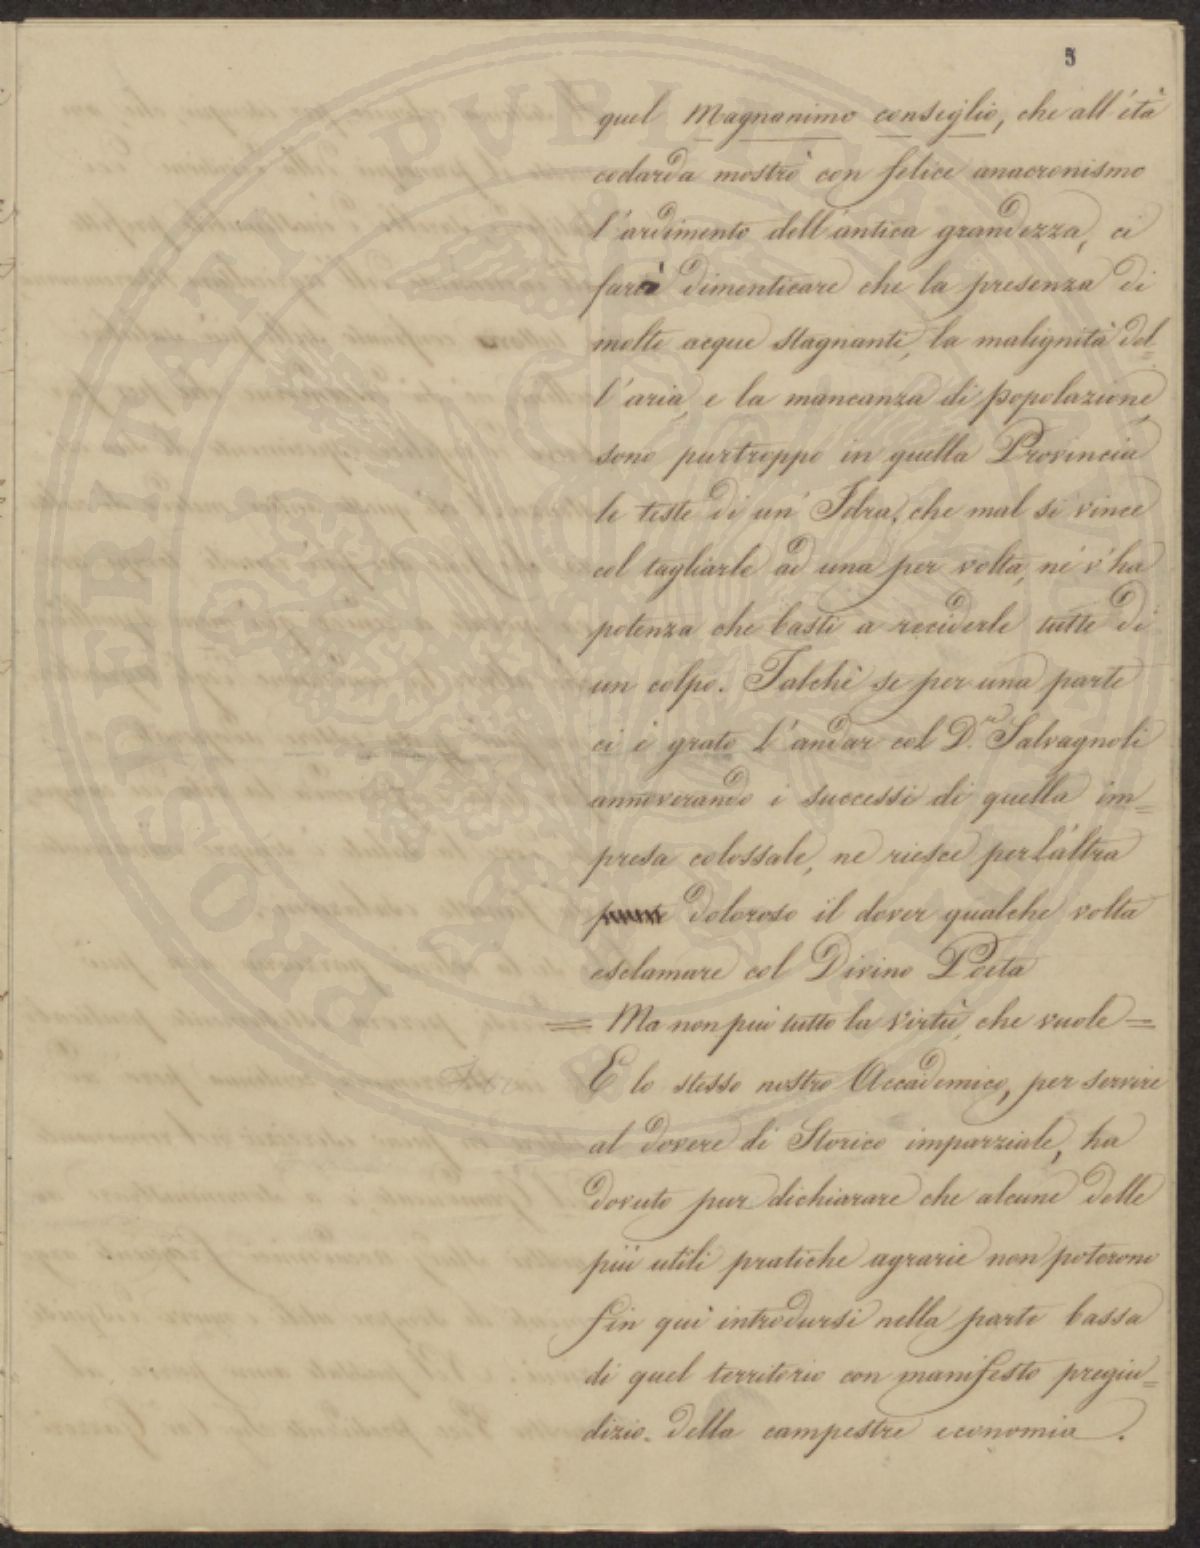 5
quel Magnanimo conseglio, che all'età
codarda mostrò con felice anacronismo
l'ardimento dell'antica grandezza, ci
farà dimenticare che la presenza di
molte acque stagnanti, la malignità del=
l'aria, e la mancanza di popolazione,
sono purtroppo in quella Provincia
le teste di un'Idra, che mal si vince
col tagliarle ad una per volta, nè v'ha
potenza che basti a reciderle tutte di
un colpo. Talchè se per una parte
ci è grato l'andar col D.r Salvagnoli
annoverando i successi di quella im=
presa colossale, ne riesce per l'altra
doloroso il dover qualche volta
esclamare col Divino Poeta
= Ma non può tutto la virtù, che vuole =
E lo stesso nostro Accademico, per servire
al dovere di Storico imparziale, ha
dovuto pur dichiarare che alcune delle
più utili pratiche agrarie non poterono
fin quì introdursi nella parte bassa
di quel territorio con manifesto pregiu=
dizio della campestre economia.
PROSPERITATI PUBLICAE